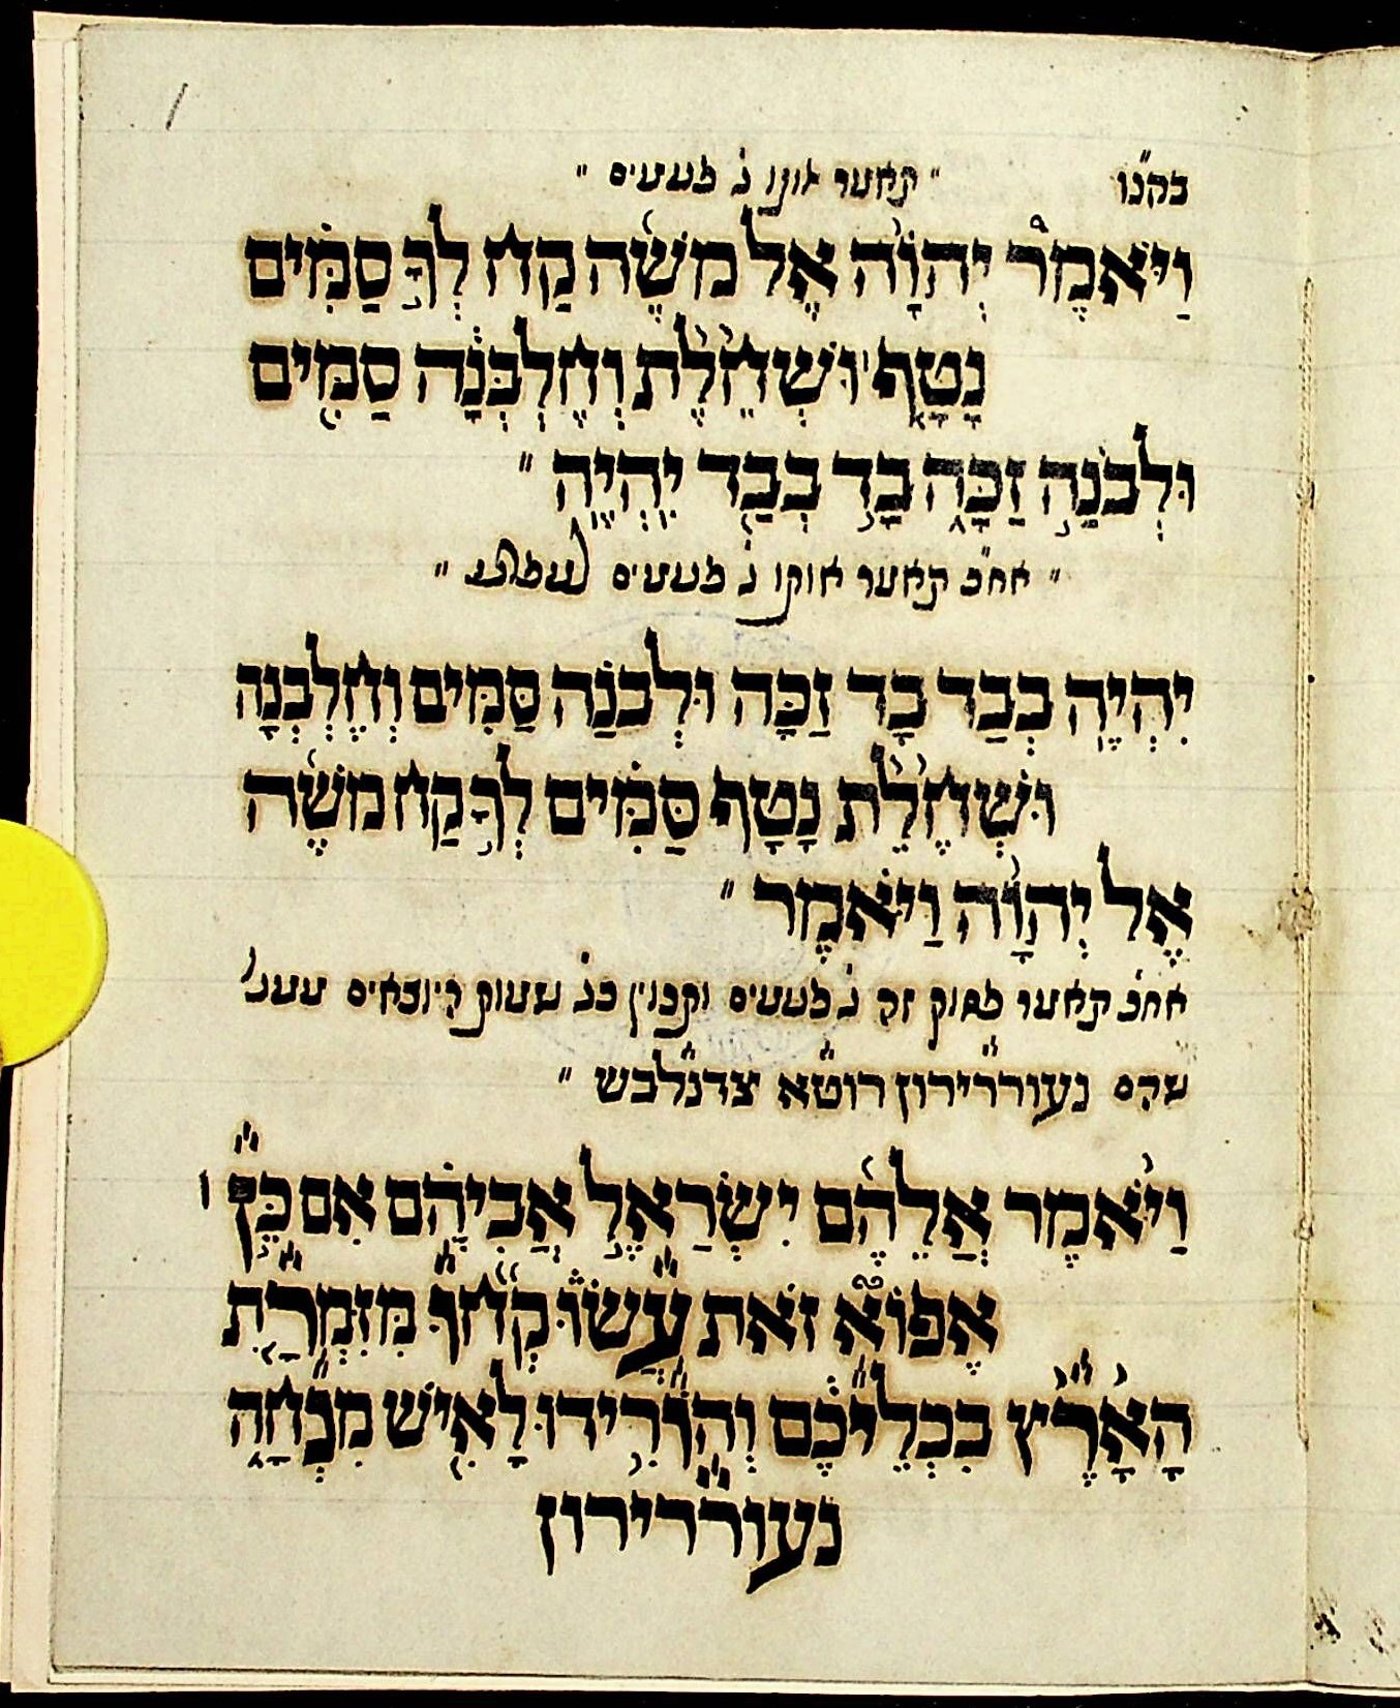 בקנ״ו ״ תאמר אותו ג׳ פעמים ״
וַיֹּאמֶר יְהוָֹה אֶל מֹשֶׁה קַח לְךָ סַמִּים
נָטָף וּשְׁחֵלֶת וְחֶלְבְּנָה סַמִּים
וּלְבֹנָה זַכָּה בַּד בְּבַד יִהְיֶה ״
״ אח״כ תאמר אותו ג׳ פעמים למפרע ״
יִהְיֶה בְּבַד בָּד זַכָּה וּלְבֹנַה סַּמִּים וְחֶלְבְּנָה
וּשְׁחֶלֵת נָטָף סַּמִּים לְךָ קַח מֹשֶׁה
אֶל יְהוָֹה וַיֹּאמֶר ״
אח״כ תאמר פסוק זה ג׳ פעמים ותכוין בג׳ שמות היוצאים ממנו
שהם נעורררירון רוט״א צדנלבש ״
וַיֹּאמֶר אֲלֵהֶם יִשְׂרַאֶל אֲבִיהֶם אִם כֵּן
אֶפוֹא זֹאת עֲשׂוּ קְחוּ מִזִּמְרָת
הָאָרֶץ בִּכְלֵיכֶם וְהוֹרִידוּ לָאִישׁ מִנְחָה
נעורררירון